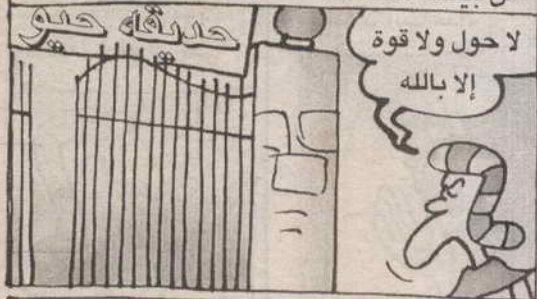 حديقة حيو
لا حول ولا قوة
إلا بالله